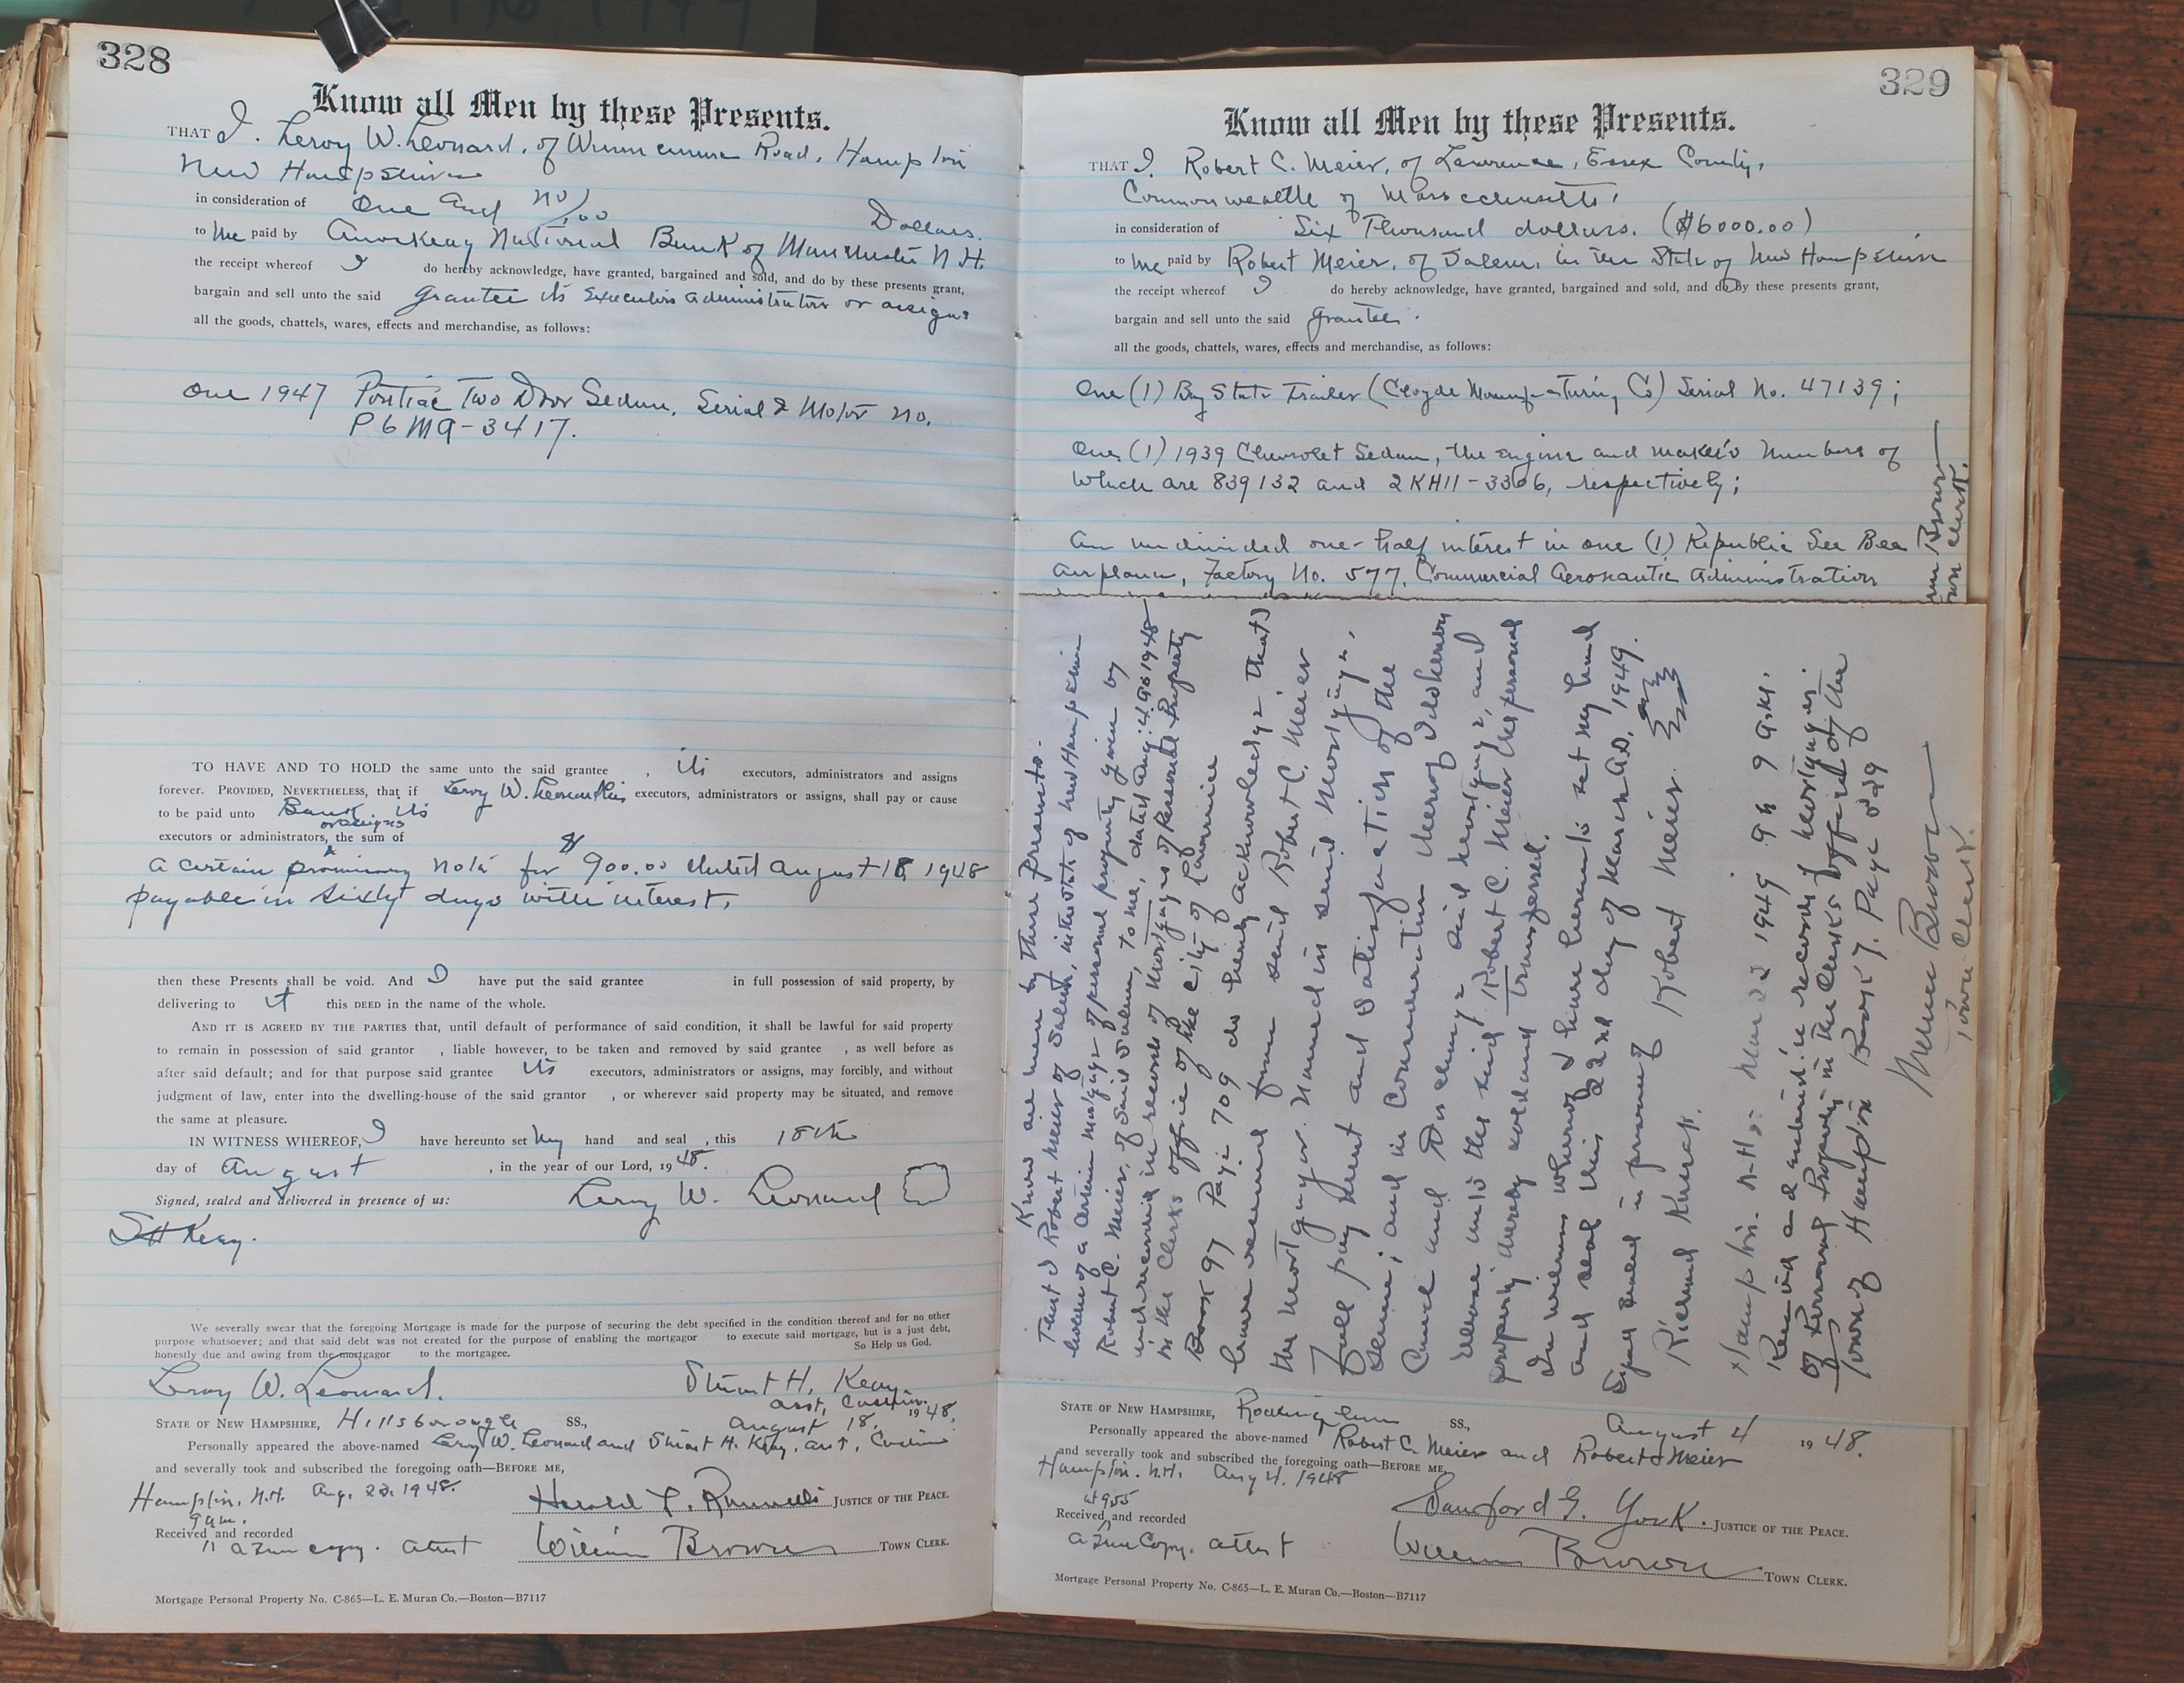 328
Know all Men by these Presents.
THAT I. Leroy W. Leonard, of Winnacunnet Road, Hampton
New Hampshire
in consideration of One and no/100 Dollars.
to me paid by Amoskeag National Bank of Manchester N.H.
the receipt whereof I do hereby acknowledge, have granted, bargained and sold, and do by these presents grant,
bargain and sell unto the said Grantee its Executors administrators or assigns
all the goods, chattels, wares, effects and merchandise, as follows:
One 1947 Pontiac Two Door Sedan, Serial & Motor no.
P6MA-3417.
TO HAVE AND TO HOLD the same unto the said grantee , its executors, administrators and assigns
forever. PROVIDED, NEVERTHELESS, that if Leroy W. Leonard his executors, administrators or assigns, shall pay or cause
to be paid unto Bank its
or assigns
executors or administrators, the sum of
a certain promissory note for $900.00 dated August 18, 1948
payable in sixty days with interest.
then these Presents shall be void. And I have put the said grantee in full possession of said property, by
delivering to it this DEED in the name of the whole.
AND IT IS AGREED BY THE PARTIES that, until default of performance of said condition, it shall be lawful for said property
to remain in possession of said grantor , liable however, to be taken and removed by said grantee , as well before as
after said default; and for that purpose said grantee its executors, administrators or assigns, may forcibly, and without
judgment of law, enter into the dwelling-house of the said grantor , or wherever said property may be situated, and remove
the same at pleasure.
IN WITNESS WHEREOF, I have hereunto set my hand and seal , this 18th
day of August , in the year of our Lord, 1948.
Signed, sealed and delivered in presence of us: Leroy W. Leonard
SH Keay.
We severally swear that the foregoing Mortgage is made for the purpose of securing the debt specified in the condition thereof and for no other
purpose whatsoever; and that said debt was not created for the purpose of enabling the mortgagor to execute said mortgage, but is a just debt,
honestly due and owing from the mortgagor to the mortgagee. So Help us God.
Leroy W. Leonard. Stuart H. Keay.
asst. Cashier.
STATE OF NEW HAMPSHIRE, Hillsborough SS., August 18, 1948.
Personally appeared the above-named Leroy W. Leonard and Stuart H. Keay, asst. Cashier
and severally took and subscribed the foregoing oath—BEFORE ME,
Hampton, N.H. Aug. 23, 1948. Harold JUSTICE OF THE PEACE.
9 am.
Received and recorded
a True copy. attest William Brown TOWN CLERK.
Mortgage Personal Property No. C-865—L. E. Muran Co.—Boston—B7117
329
Know all Men by these Presents.
THAT I. Robert C. Meier, of Lawrence, Essex County,
Commonwealth of Massachusetts,
in consideration of Six Thousand dollars. ($6000.00)
to me paid by Robert Meier, of Salem, in the State of New Hampshire
the receipt whereof I do hereby acknowledge, have granted, bargained and sold, and do by these presents grant,
bargain and sell unto the said Grantee.
all the goods, chattels, wares, effects and merchandise, as follows:
One (1) Bay State Trailer (Clogde Manufacturing Co) Serial No. 47139;
One (1) 1939 Chevrolet Sedan, the engine and maker's numbers of
which are 839132 and 2KH11-3366, respectively;
An undivided one-half interest in one (1) Republic See Bee
Airplane, Factory No. 577, Commercial Aeronautic Administration
Brown
Town Clerk.
Know all men by these Presents.
That I Robert Meier of Salem, in the State of New Hampshire
holder of a certain mortgage of personal property given by
Robert C. Meier, of said Salem, to me, dated Aug. 4 AD 1948
and recorded in records of Mortgages of Personal Property
in the Clerks office of the City of Lawrence
Book 97 Page 709 do hereby acknowledge that I
have received from said Robert C. Meier
the Mortgagor. Named in said Mortgage,
full payment and satisfaction of the
same; and in consideration thereof I do hereby
Cancel and Discharge said mortgage, and
release unto the said Robert C. Meier the personal
property thereby sold and transferred.
In witness whereof I have hereunto set my hand
and seal this 22nd day of March A.D. 1949.
Signed sealed in presence of Robert Meier.
Richard
Hampton. N.H. Mar 22 1949 9h 9 a.m.
Received and entered in records of mortgages
of Personal Property in the Clerks office of the
Town of Hampton Book 7. Page 329
William Brown
Town Clerk.
STATE OF NEW HAMPSHIRE, Rockingham SS., August 4 1948.
Personally appeared the above-named Robert C. Meier and Robert Meier
and severally took and subscribed the foregoing oath—BEFORE ME,
Hampton. N.H. Aug 4. 1948
at 955 Sanford G. York. JUSTICE OF THE PEACE.
Received and recorded
a True Copy. attest William Brown TOWN CLERK.
Mortgage Personal Property No. C-865—L. E. Muran Co.—Boston—B7117